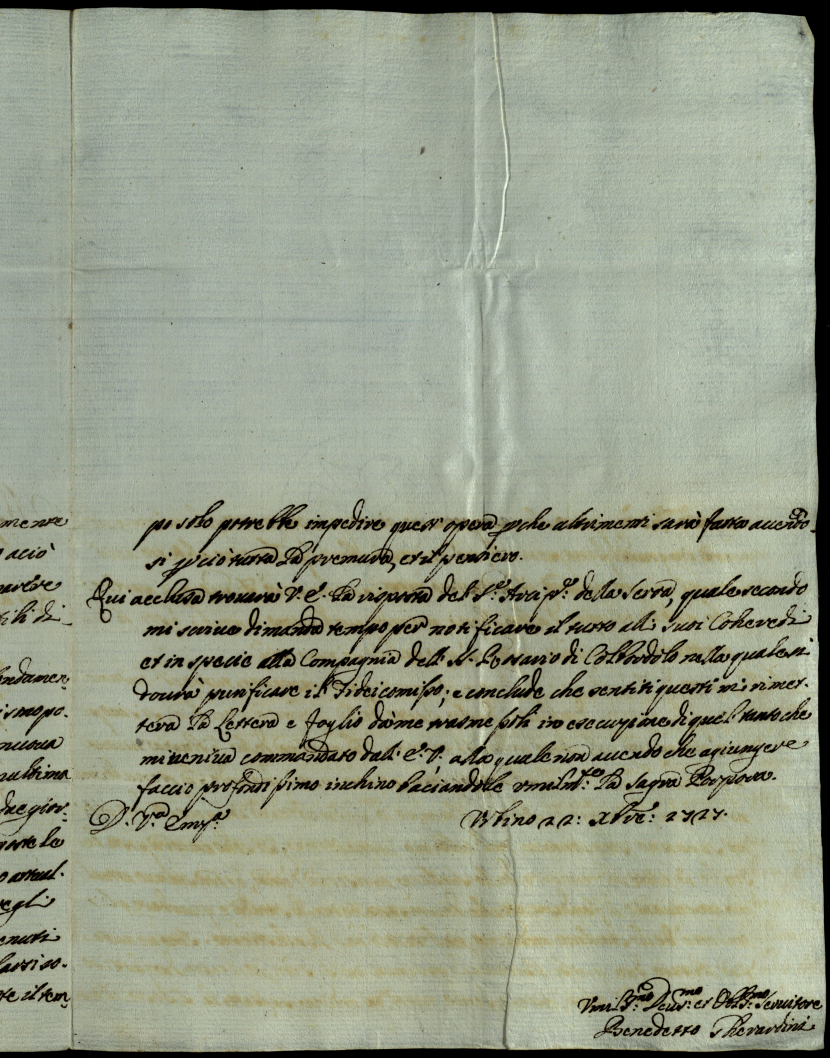 mente
acciò
avere
tili di
ndamen:
ismopo.
nuova
nultima
due gior.
parte le
attual.
egli
enuti
larsi so.
te il tem
po solo potrebbe impedire quest' opera, pche altrimenti sarà fatta avendo.
si p ciò tutta la premura, et il pensiero.
Qui acclusa trovarà V. E. la risposta del S.r Arcip.e della Serra, quale secondo
mi scrive dimanda tempo per notificare il tutto alli suoi Coheredi
et in specie alla Compagnia dell SS. Rosario di Colbordolo nella quale si
dovrà purificare il Fideicomisso; e conclude che sentiti questi mi rimet:
terà la Lettera e foglio da me trasmessoli in esecuzione di quel tanto che
mi veniva commandato dall' E. V. alla quale non avendo che agiungere
faccio profondissimo inchino baciandole umilm.te la Sagra Porpora.
D. V.ra Em.za Urbino 22: Xbre: 1727.
Umil.mo Deu.mo et Obl.mo Servitore
Benedetto Gherardini